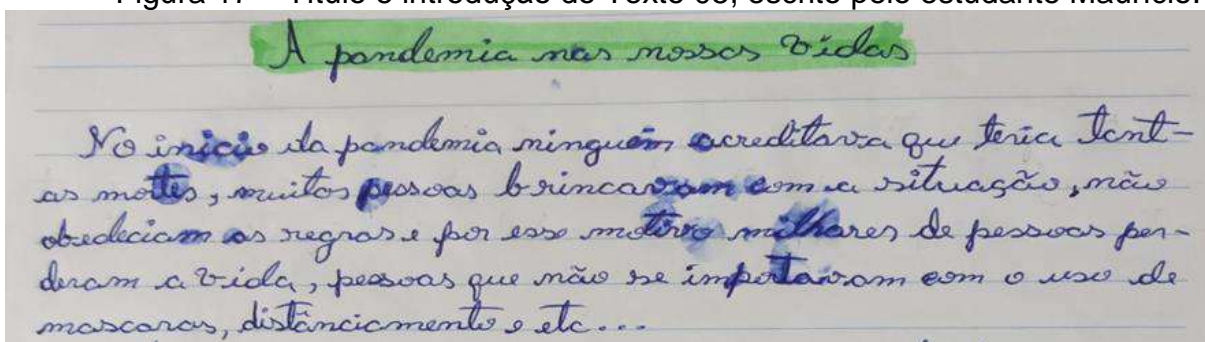 Figura 47 – Título e introdução do Texto 03, escrito pelo estudante Maurício.
A pandemia nas nossas vidas
No inicio da pandemia ninguém acreditava que teria tant-
as mortes, muitos pessoas brincavam com a situação, não
obedeciam as regras e por esse motivo milhares de pessoas per-
deram a vida, pessoas que não se importavam com o uso de
mascaras, distânciamento e etc...